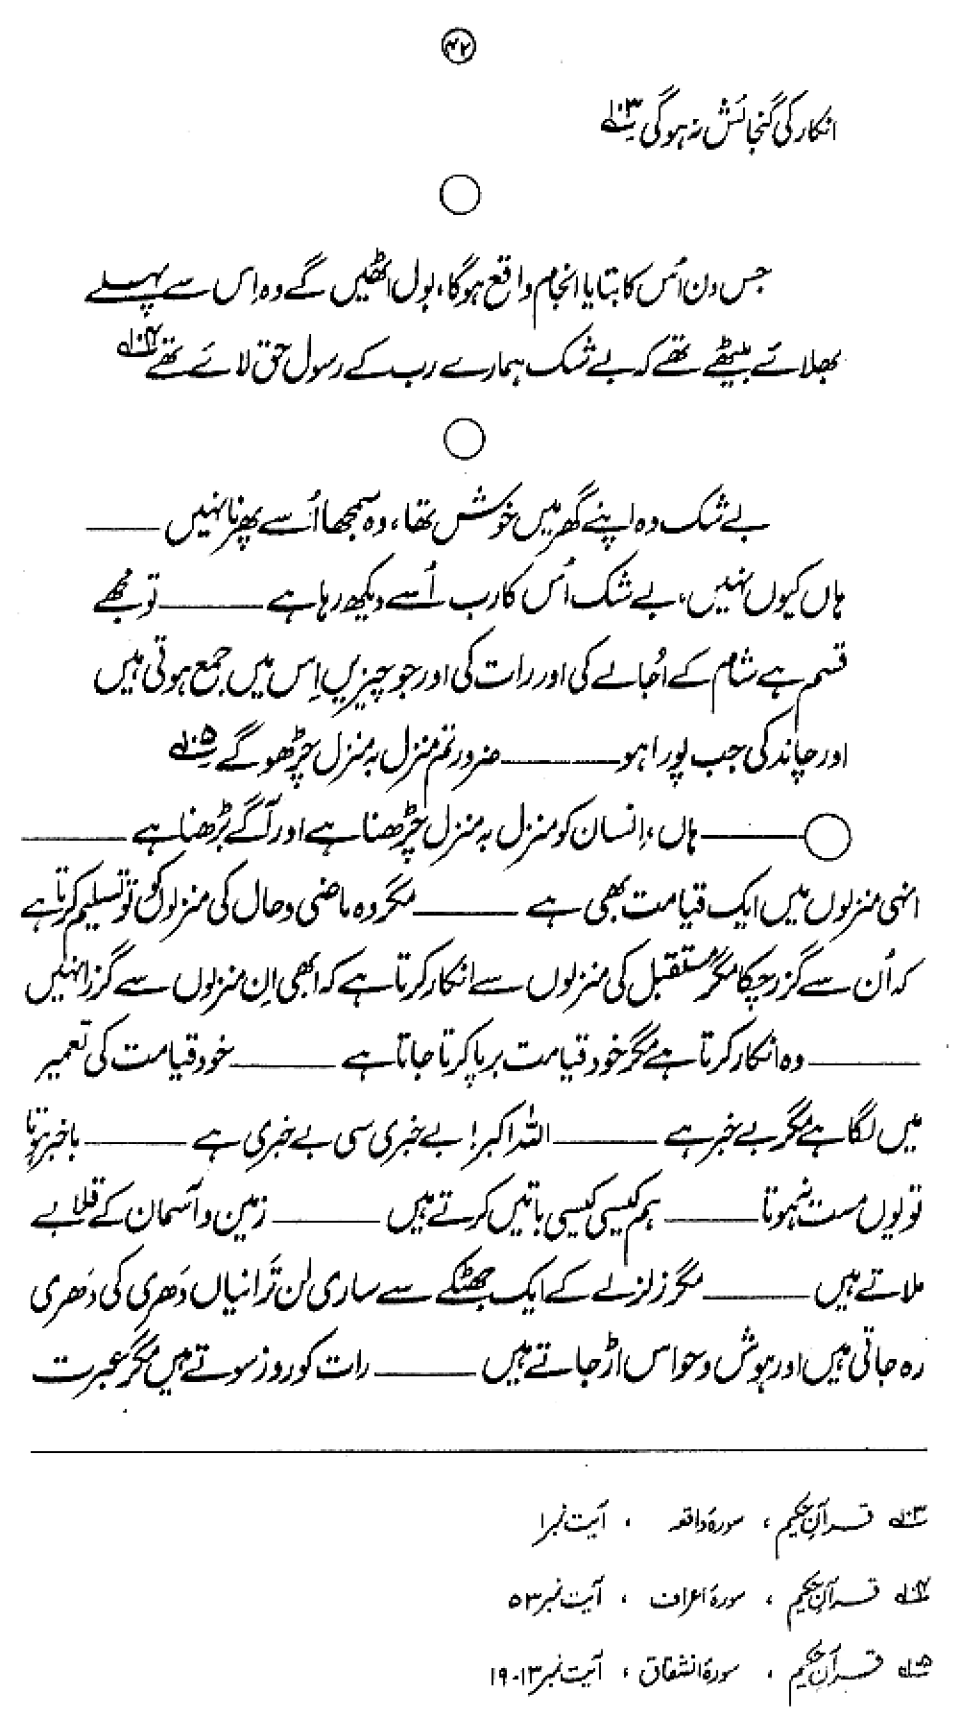 ۴۲
انکار کی گنجائش نہ ہوگی ۱۰۳؎
جس دن اُس کا بتایا انجام واقع ہوگا، بول اٹھیں گے وہ اِس سے پہلے
بھلائے بیٹھے تھے کہ بے شک ہمارے رب کے رسول حق لائے تھے ۱۰۴؎
بے شک وہ اپنے گھر میں خوش تھا، وہ سمجھا اُسے پھرنا نہیں ———
ہاں کیوں نہیں، بے شک اُس کا رب اُسے دیکھ رہا ہے ——— تو مجھے
قسم ہے شام کے اُجالے کی اور رات کی اور جو چیزیں اِس میں جمع ہوتی ہیں
اور چاند کی جب پورا ہو ——— ضرور تم منزل بہ منزل چڑھو گے ۱۰۵؎
——— ہاں، اِنسان کو منزل بہ منزل چڑھنا ہے اور آگے بڑھنا ہے ———
انہی منزلوں میں ایک قیامت بھی ہے ——— مگر وہ ماضی و حال کی منزلوں کو تو تسلیم کرتا ہے
کہ اُن سے گزر چکا مگر مستقبل کی منزلوں سے انکار کرتا ہے کہ ابھی اِن منزلوں سے گزرا نہیں
——— وہ انکار کرتا ہے مگر خود قیامت برپا کرتا جاتا ہے ——— خود قیامت کی تعمیر
میں لگا ہے مگر بے خبر ہے ——— اللہ اکبر! بے خبری سی بے خبری ہے ——— باخبر ہوتا
تو یوں مست نہ ہوتا ——— ہم کیسی کیسی باتیں کرتے ہیں ——— زمین و آسمان کے قلابے
ملاتے ہیں ——— مگر زلزلے کے ایک جھٹکے سے ساری لن ترانیاں دَھری کی دَھری
رہ جاتی ہیں اور ہوش و حواس اڑ جاتے ہیں ——— رات کو روز سوتے ہیں مگر عبرت
۱۰۳؎ قرآن حکیم، سورۂ واقعہ، آیت نمبر ۱
۱۰۴؎ قرآن حکیم، سورۂ اعراف، آیت نمبر ۵۳
۱۰۵؎ قرآن حکیم، سورۂ انشقاق، آیت نمبر ۱۳-۱۹